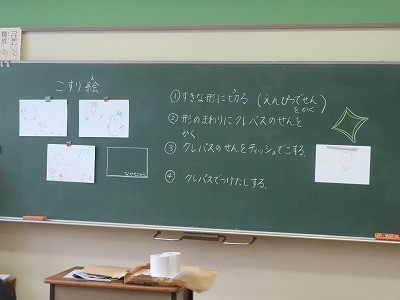 こすり絵
え
①すきな形に切る(えんぴつでせん
をかく)
②形のまわりにクレパスのせんを
かく
③クレパスのせんをティッシュでこする。
④クレパスでつけたしする。